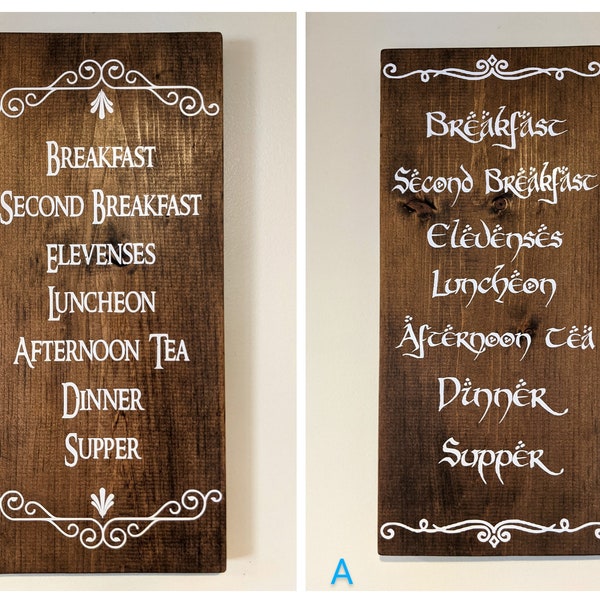 Breakfast
Second Breakfast
Elevenses
Luncheon
Afternoon Tea
Dinner
Supper
Breakfast
Second Breakfast
Elevenses
Luncheon
Afternoon Tea
Dinner
Supper
A